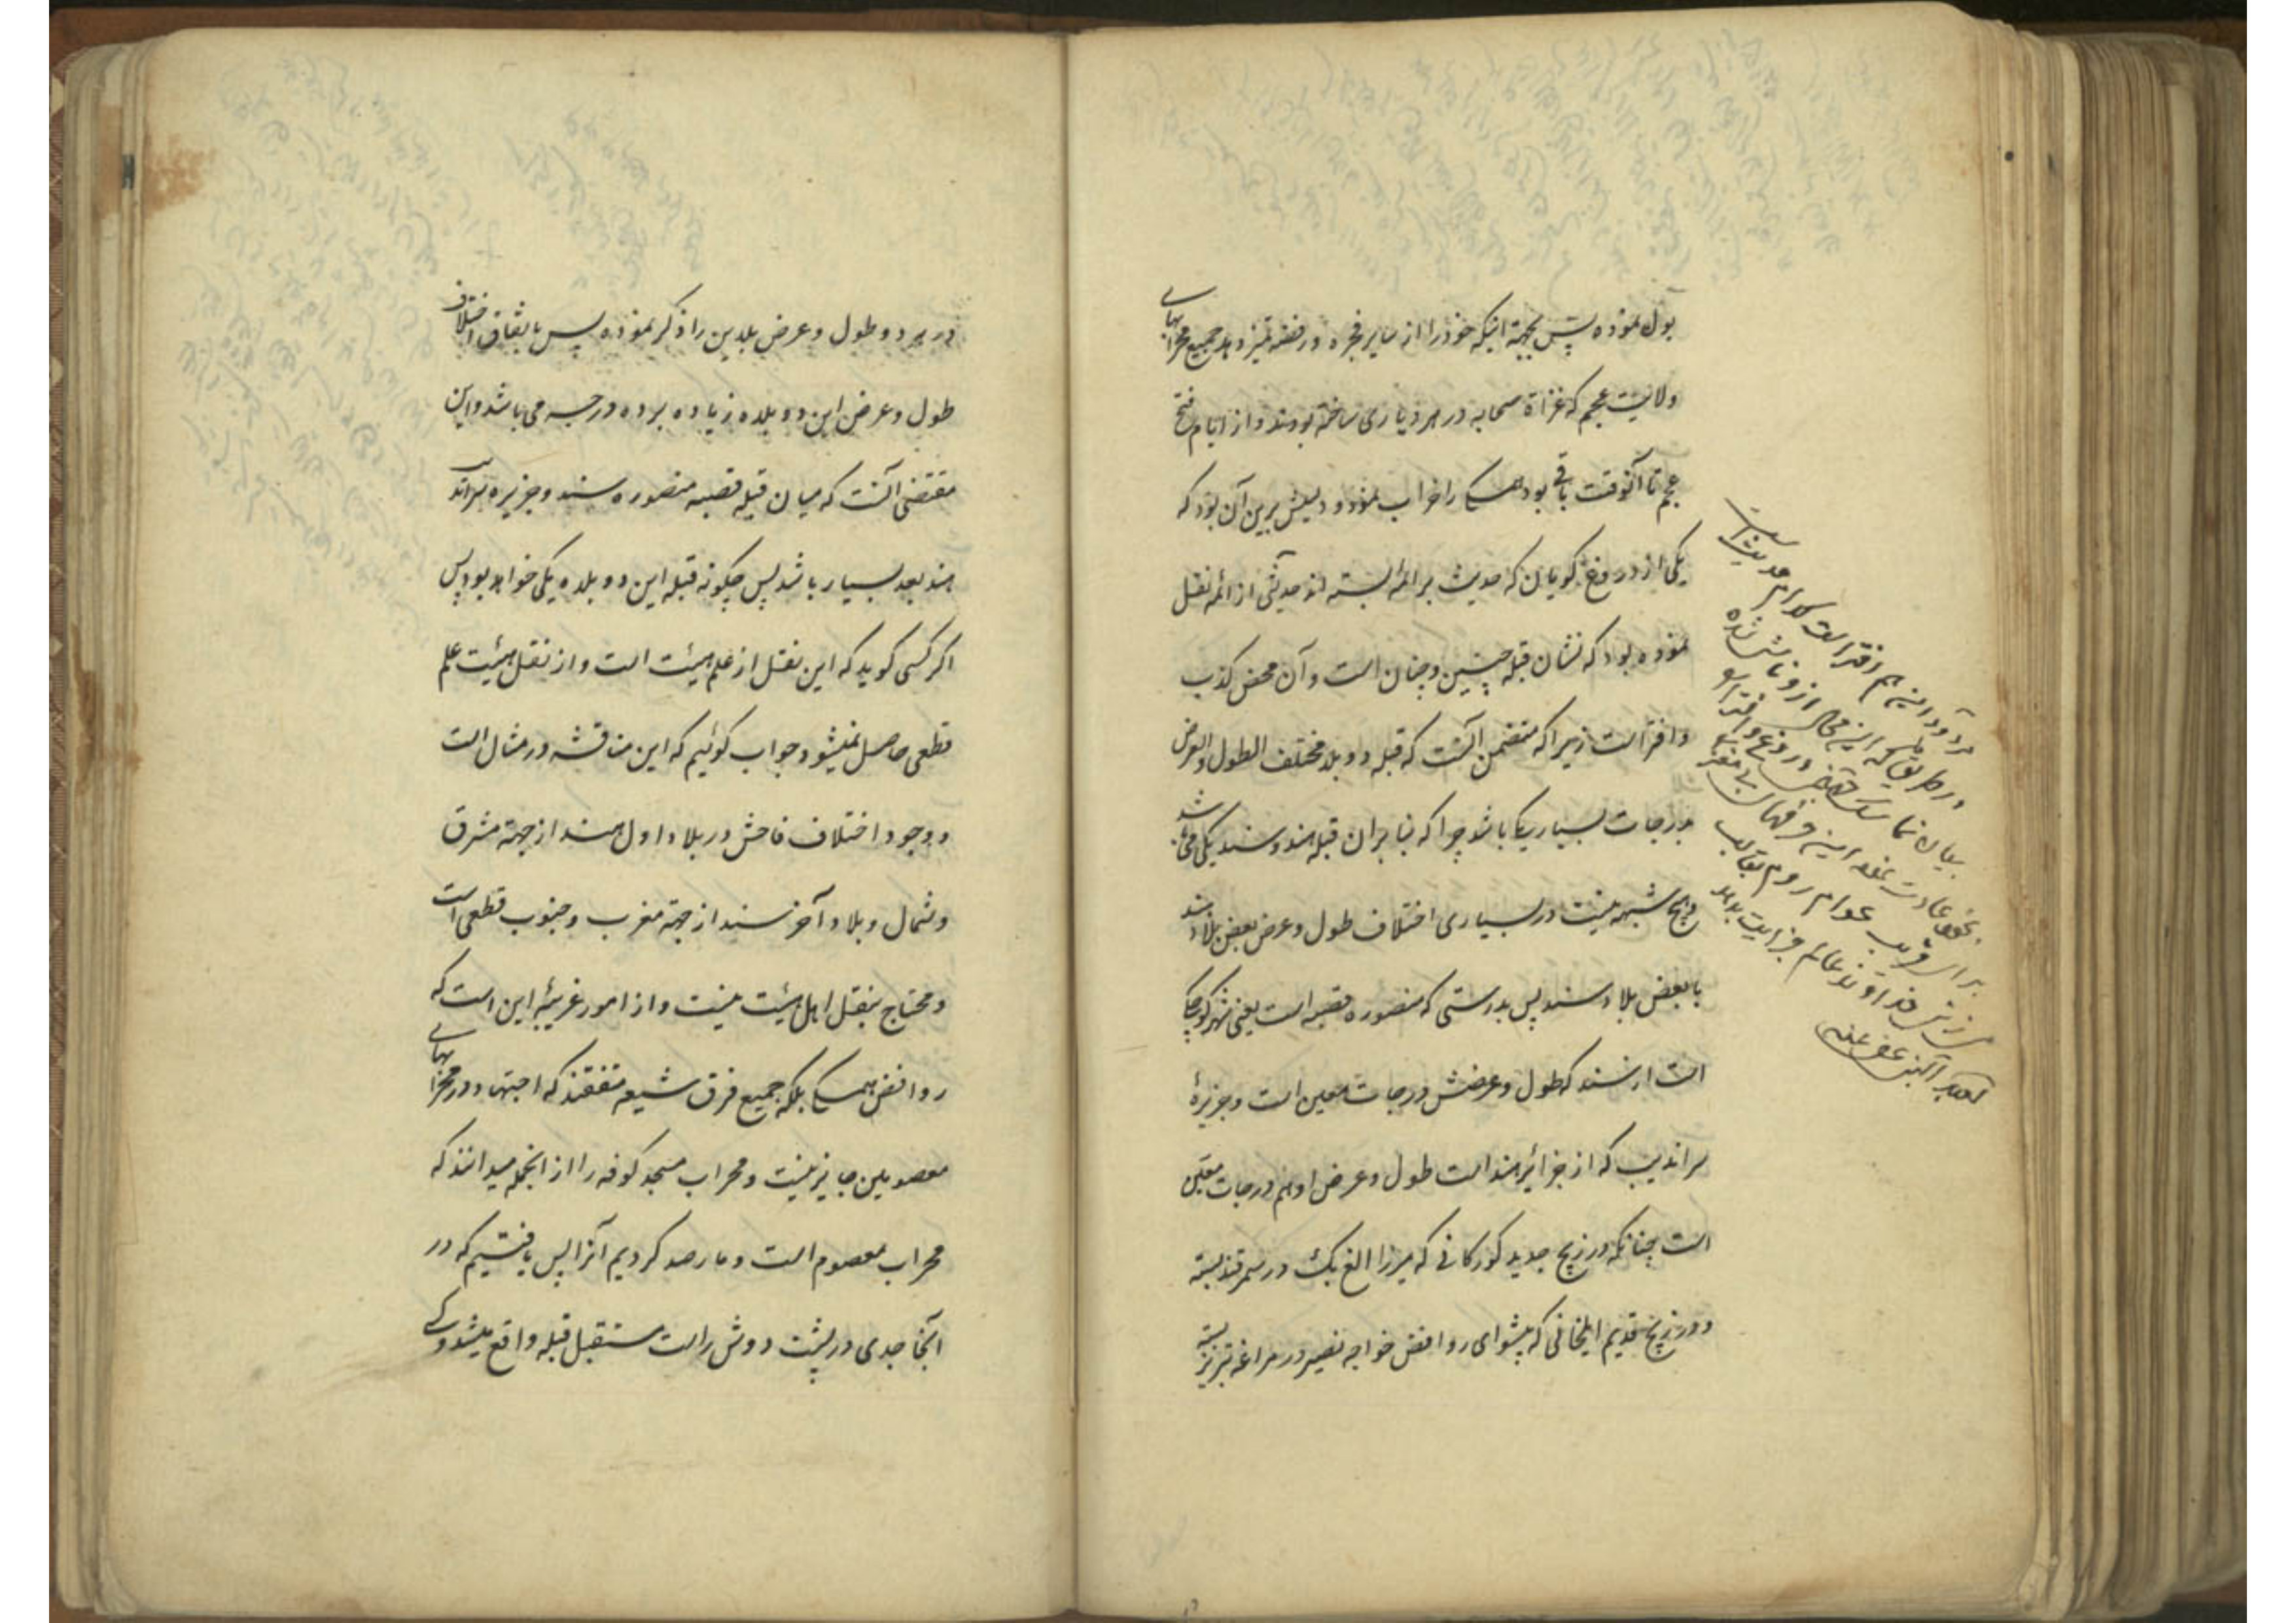 بول نموده پس بجهة اینکه خود را از سایر فجره و رفضه تمیز دهد جمیع محرابهای
ولایت عجم که غزاة صحابه در هر دیاری ساخته بودند و از ایام فتح
عجم تا آنوقت باقی بود همه را خراب نمود و دلیلش برین آن بود که
یکی از دروغ گویان که حدیث بر ائمه بسته اند حدیثی از ائمه نقل
نموده بود که نشان قبله چنین و چنان است و آن محض کذب
و افتراست زیرا که متضمن آنست که قبله دو بلد مختلف الطول والعرض
بدرجات بسیار یکی باشد چرا که بنا بران قبله هند و سند یکی می باشد
و هیچ شبهه نیست در بسیاری اختلاف طول و عرض بعض بلاد هند
با بعض بلاد سند پس بدرستی که منصوره قصبه است یعنی شهر کوچکی
است از سند که طول و عرضش درجات معین است و جزیرهٔ
سراندیب که از جزائر هند است طول و عرض او هم درجات معین
است چنانکه در زیج جدید کورکانی که میرزا الغ بک در سمرقند بسته
و در زیج قدیم ایلخانی که پیشوای روافض خواجه نصیر در مراغه تبریز بسته
مراد آنست هم افتراست کدام حدیث است
در طریق این محال از و ناشی شده
بیان نما دروغ و افترا
بنحو عادت نموده این
برای فریب عوام روم
سرزنش خداوند عالم جزایت بدهد
در هر دو طول و عرض بلدین را ذکر نموده پس باتفاق اختلاف
طول و عرض این دو بلده زیاده بر ده درجه می باشد و این
مقتضی آنست که میان قبله قصبه منصوره سند و جزیره سراندیب
هند بعد بسیار باشد پس چگونه قبله این دو بلده یکی خواهد بود پس
اکر کسی کوید که این نقل از علم هیئت است و از نقل هیئت علم
قطعی حاصل نمیشود جواب کوئیم که این مناقشه در مثال است
و وجود اختلاف فاحش در بلاد اول هند از جهة مشرق
و شمال و بلاد آخر سند از جهة مغرب و جنوب قطعی است
و محتاج بنقل اهل هیئت نیست و از امور غریبه این است که
روافض همه بلکه جمیع فرق شیعه متفقند که اجتهاد در محرابهای
معصومین جایز نیست و محراب مسجد کوفه را از انجمله میدانند که
محراب معصوم است و ما رصد کردیم آنرا پس یافتیم که در
آنجا جدی در پشت دوش راست مستقبل قبله واقع میشود